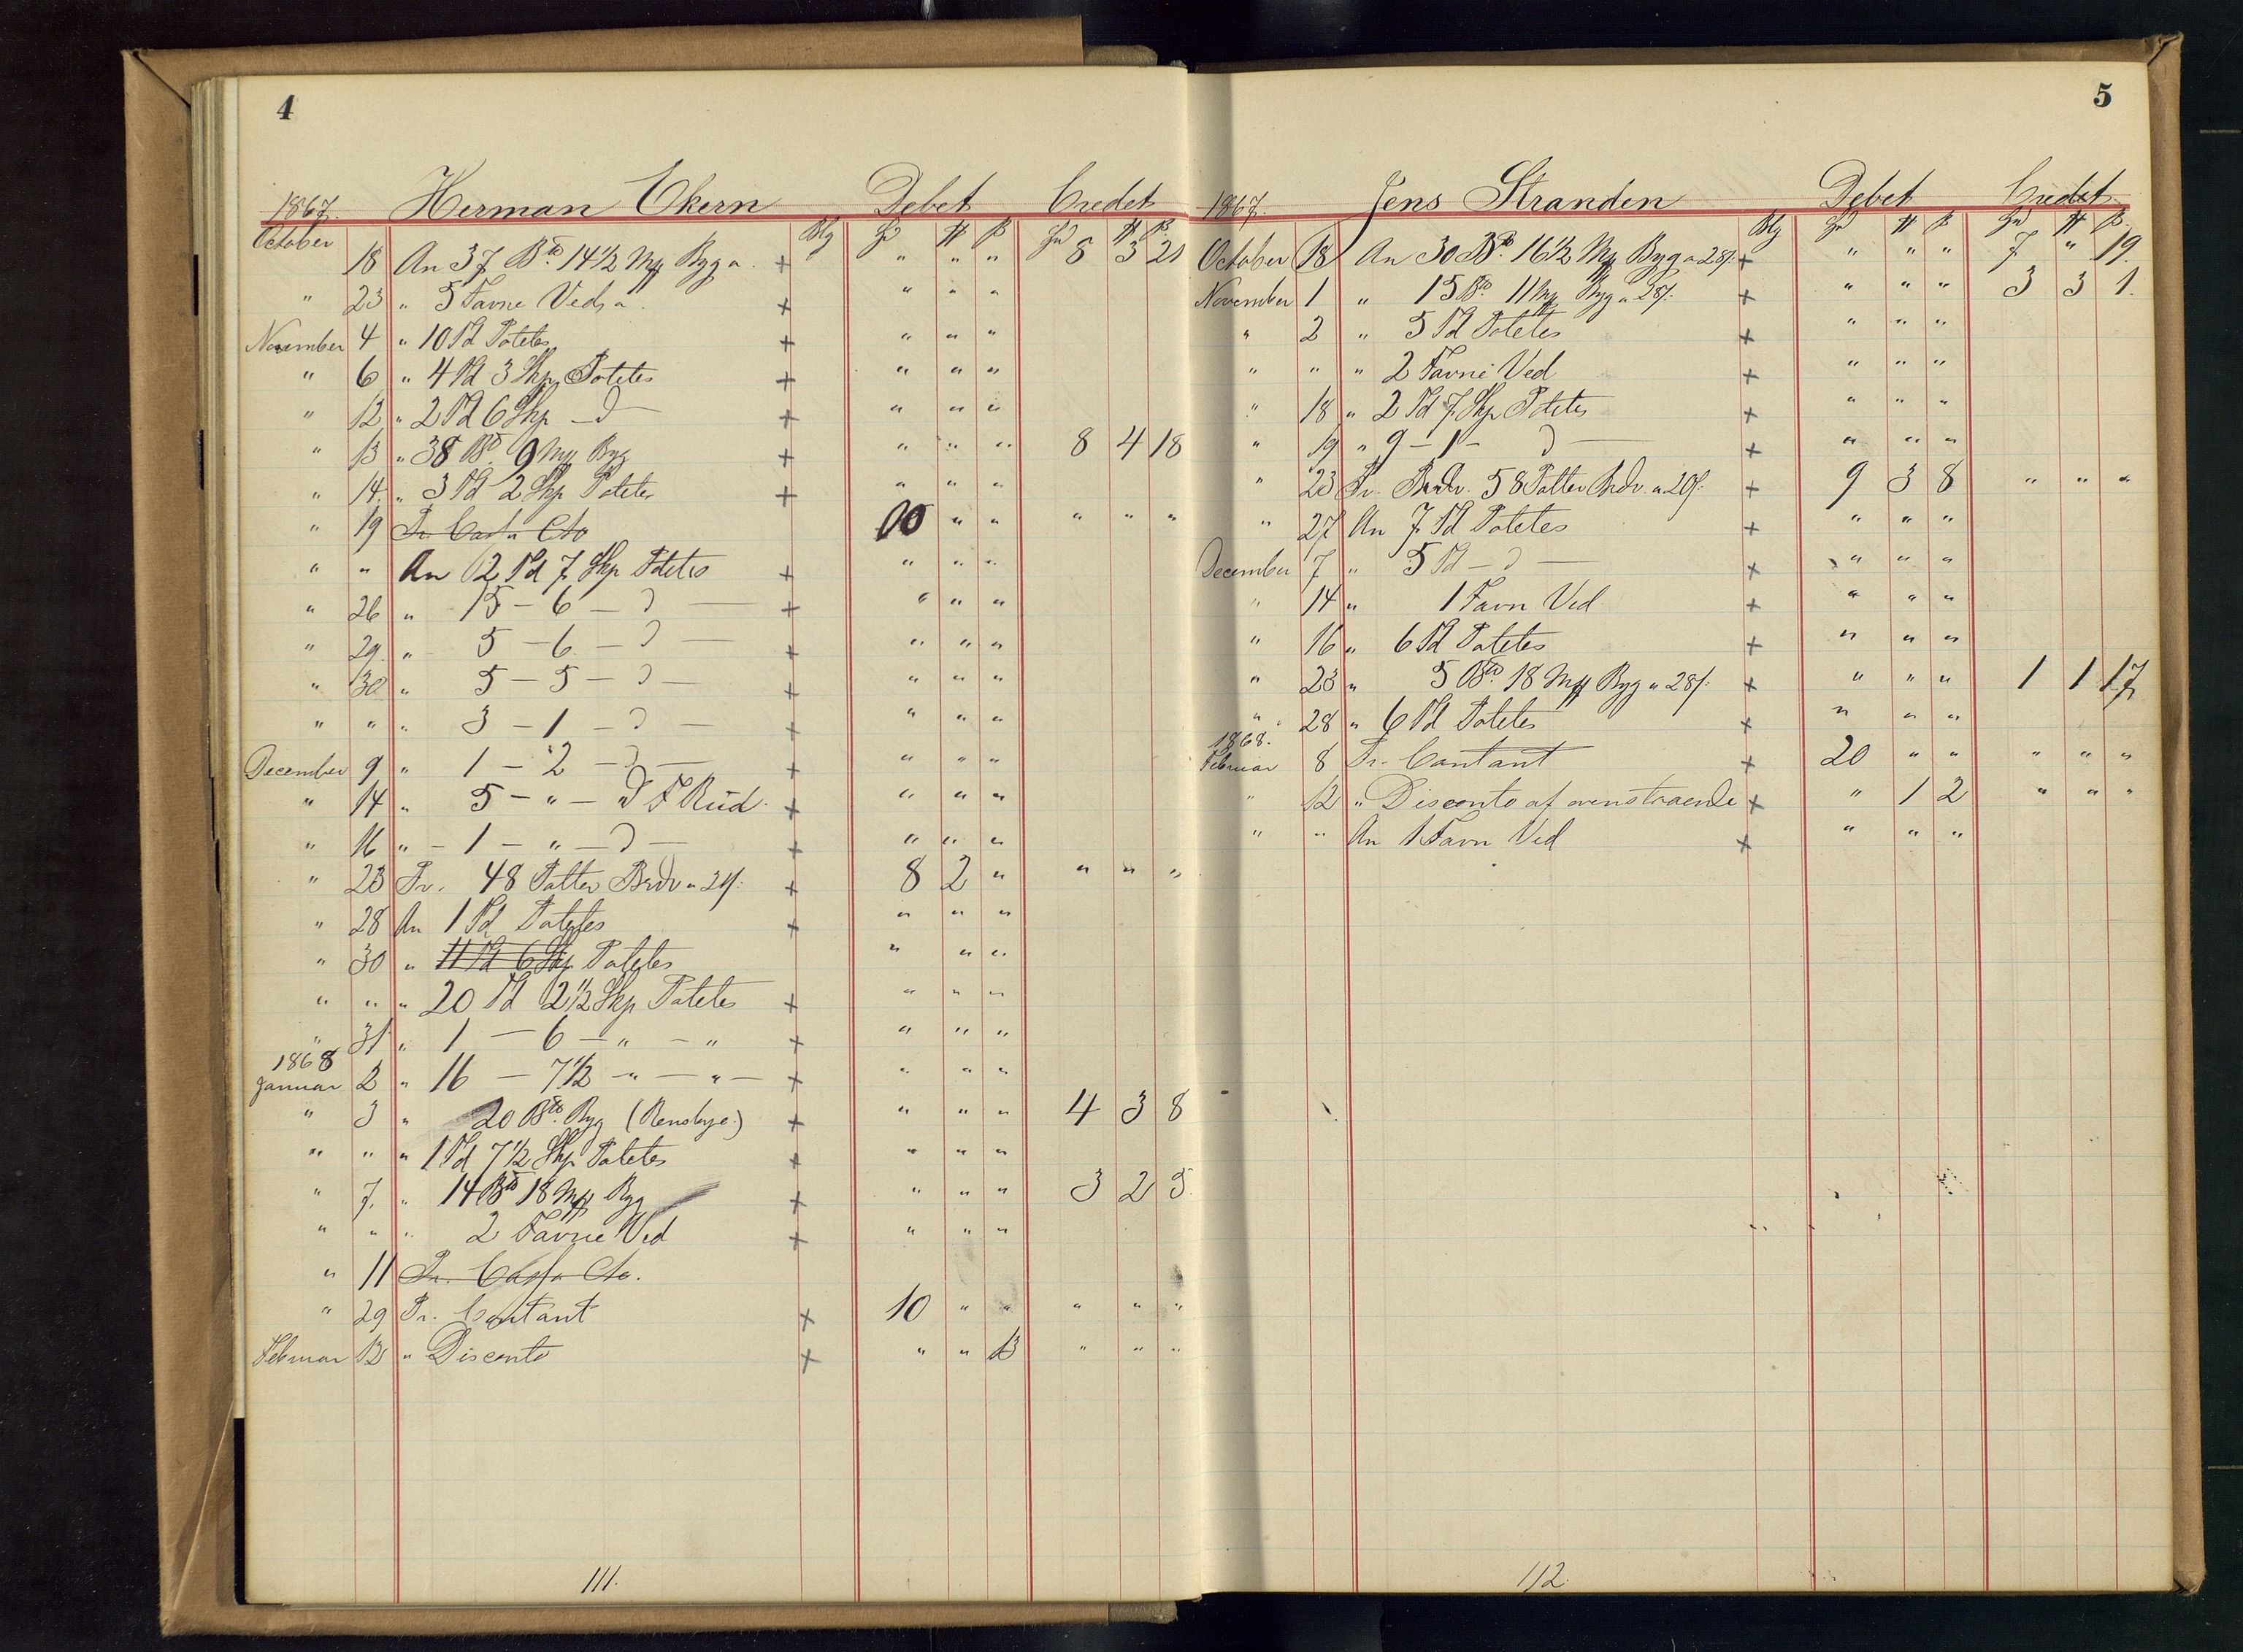 4
1867. Herman Ekern Debet Credet
October Blg
18 An 37 Bd 14 1/2 Mk Byg a + " " " 8 3 21
" 23 " 5 Favne Ved, a + " " "
November 4 " 10 Td Potetes + " " "
" 6 " 4 Td 3 Skp Potetes + " " "
" 12 " 2 Td 6 Skp — d — + " " "
" 13 " 38 Bd 9 Mk Byg + " " " 8 4 18
" 14 " 3 Td 2 Skp Potetes + " " "
" 19 Pr. Cassa Cto 10 " " " " "
" " An 12 Td 7 Skp Potetes + " " "
" 26 " 15 — 6 — d — + " " "
" 29 " 5 — 6 — d — + " " "
" 30 " 5 — 5 — d — + " " "
" " " 3 — 1 — d — + " " "
December 9 " 1 — 2 — d — + " " "
" 14 " 5 — " — d F Rud + " " "
" 16 " — 1 — " — d — + " " "
" 23 Pr. 48 Potter Brdv a + 8 2 " " " "
" 28 An 1 Td Potetes + " " "
" 30 " 11 Td 6 Skp Potetes " " "
" " " 20 Td 2 1/2 Skp Potetes + " " "
" 31 " 1 — 6 — " — " + " " "
1868
Januar 2 " 16 — 7 1/2 — " — " — + " " "
" 3 " 20 Bd Byg + " " " 4 3 8
" " " 1 Td 7 1/2 Skp Potetes + " " "
" 7. " 14 Bd 18 Mk Byg + " " " 3 2 5
" " " 2 Favne Ved + " " "
" 11 Pr. Cassa Cto.
" 29 Pr. Contant + 10 " " " " "
Februar 12 " Disconto + " " 13 " " "
111.
5
1867. Jens Stranden Debet Credet
Blg
October 18 An 30 Bd 16 1/2 Mk Byg a 28/: + " " " 7 " 19.
November 1 " 15 Bd 11 Mk Byg a 28/: + " " " 3 3 1.
" 2 " 5 Td Potetes + " " "
" " " 2 Favne Ved + " " "
" 18 " 2 Td 7 Skp Potetes + " " "
" 19 " 9 — 1 — d — + " " "
" 23 Pr. Brdv. 58 Potter Brdv. a 20/: + 9 3 8 " " "
" 27 An 7 Td Potetes + " " "
December 7 " 5 Td — d — + " " "
" 14 " 1 Favn Ved + " " "
" 16 " 6 Td Potetes + " " "
" 23 " 5 Bd 18 Mk Byg a 28/: + " " " 1 1 17
" 28 " 6 Td Potetes + " " "
1868.
Februar 8 Pr. Contant + 20 " " " " "
" 12 " Disconto af ovenstaaende + " 1 2 " " "
" " An 1 Favn Ved + " " "
112.